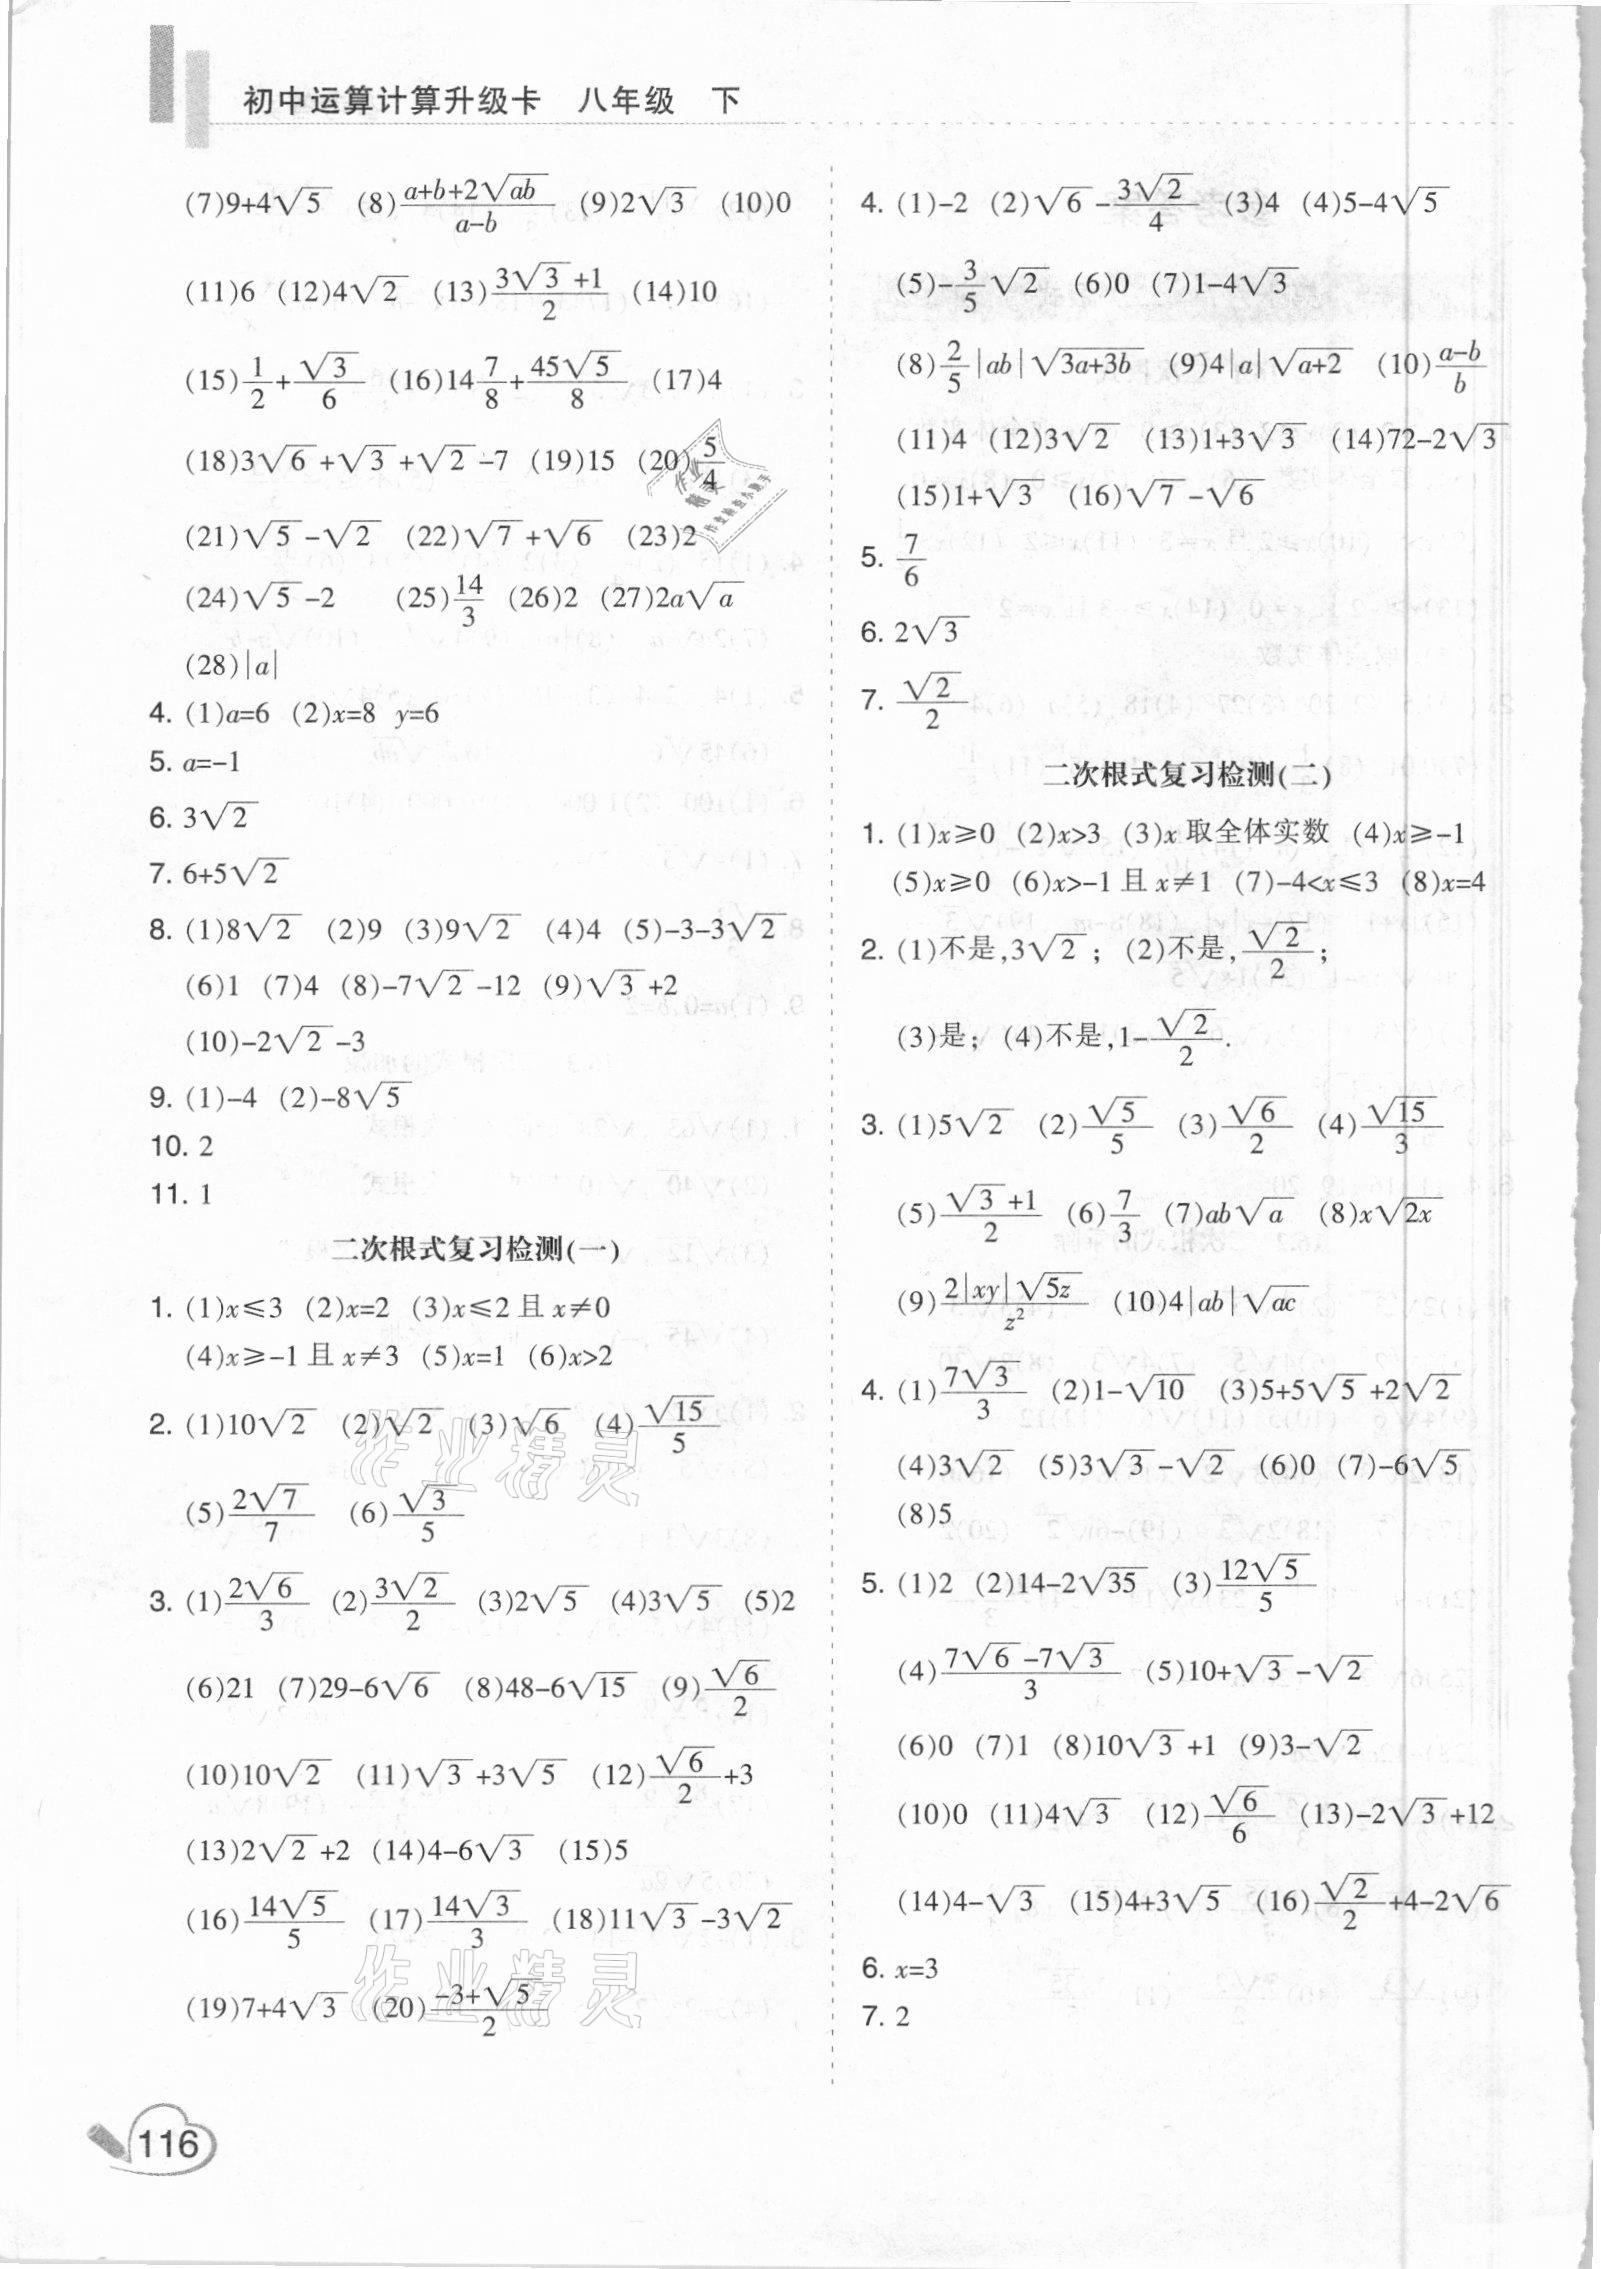 初中运算计算升级卡 八年级 下
(7)9+4√5 (8)(a+b+2√ab)/(a-b) (9)2√3 (10)0
(11)6 (12)4√2 (13)(3√3+1)/2 (14)10
(15)1/2+√3/6 (16)14 7/8+45√5/8 (17)4
(18)3√6+√3+√2-7 (19)15 (20)5/4
(21)√5-√2 (22)√7+√6 (23)2
(24)√5-2 (25)14/3 (26)2 (27)2a√a
(28)|a|
4. (1)a=6 (2)x=8 y=6
5. a=-1
6. 3√2
7. 6+5√2
8. (1)8√2 (2)9 (3)9√2 (4)4 (5)-3-3√2
(6)1 (7)4 (8)-7√2-12 (9)√3+2
(10)-2√2-3
9. (1)-4 (2)-8√5
10. 2
11. 1
二次根式复习检测(一)
1. (1)x≤3 (2)x=2 (3)x≤2且x≠0
(4)x≥-1且x≠3 (5)x=1 (6)x>2
2. (1)10√2 (2)√2 (3)√6 (4)√15/5
(5)2√7/7 (6)√3/5
3. (1)2√6/3 (2)3√2/2 (3)2√5 (4)3√5 (5)2
(6)21 (7)29-6√6 (8)48-6√15 (9)√6/2
(10)10√2 (11)√3+3√5 (12)√6/2+3
(13)2√2+2 (14)4-6√3 (15)5
(16)14√5/5 (17)14√3/3 (18)11√3-3√2
(19)7+4√3 (20)(-3+√5)/2
4. (1)-2 (2)√6-3√2/4 (3)4 (4)5-4√5
(5)-3/5√2 (6)0 (7)1-4√3
(8)2/5|ab|√(3a+3b) (9)4|a|√(a+2) (10)(a-b)/b
(11)4 (12)3√2 (13)1+3√3 (14)72-2√3
(15)1+√3 (16)√7-√6
5. 7/6
6. 2√3
7. √2/2
二次根式复习检测(二)
1. (1)x≥0 (2)x>3 (3)x取全体实数 (4)x≥-1
(5)x≥0 (6)x>-1且x≠1 (7)-4<x≤3 (8)x=4
2. (1)不是,3√2; (2)不是,√2/2;
(3)是; (4)不是,1-√2/2.
3. (1)5√2 (2)√5/5 (3)√6/2 (4)√15/3
(5)(√3+1)/2 (6)7/3 (7)ab√a (8)x√2x
(9)2|xy|√5z/z² (10)4|ab|√ac
4. (1)7√3/3 (2)1-√10 (3)5+5√5+2√2
(4)3√2 (5)3√3-√2 (6)0 (7)-6√5
(8)5
5. (1)2 (2)14-2√35 (3)12√5/5
(4)(7√6-7√3)/3 (5)10+√3-√2
(6)0 (7)1 (8)10√3+1 (9)3-√2
(10)0 (11)4√3 (12)√6/6 (13)-2√3+12
(14)4-√3 (15)4+3√5 (16)√2/2+4-2√6
6. x=3
7. 2
作业精灵
作业精灵
作业精灵
116